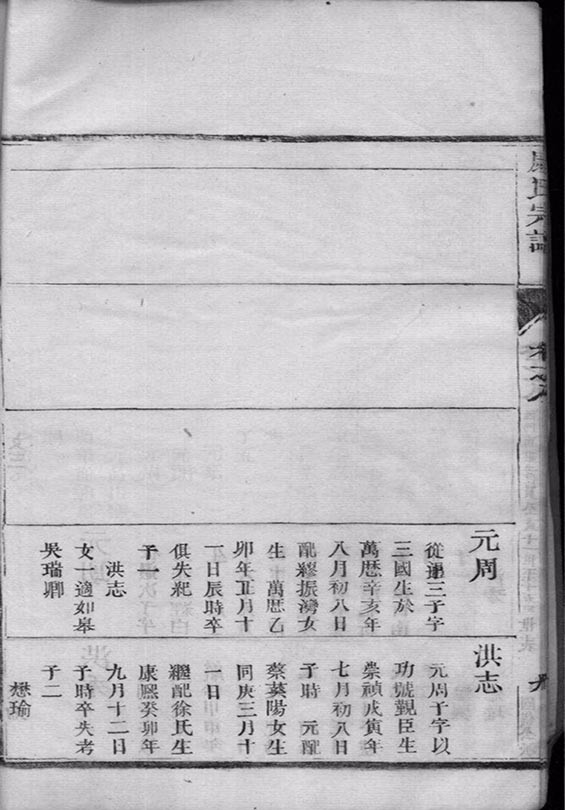 氏宗譜
卷之八
元周
從選三子字
三國生於
萬曆辛亥年
八月初八日
配繆振灣女
生萬曆乙
卯年正月十
一日辰時卒
俱失紀
子一
洪志
女一適如皋
吳瑞卿
洪志
元周子字以
功號覲臣生
崇禎戊寅年
七月初八日
子時 元配
蔡葵陽女生
同庚三月十
一日
繼配徐氏生
康熙癸卯年
九月十二日
子時卒失考
子二
懋瑜